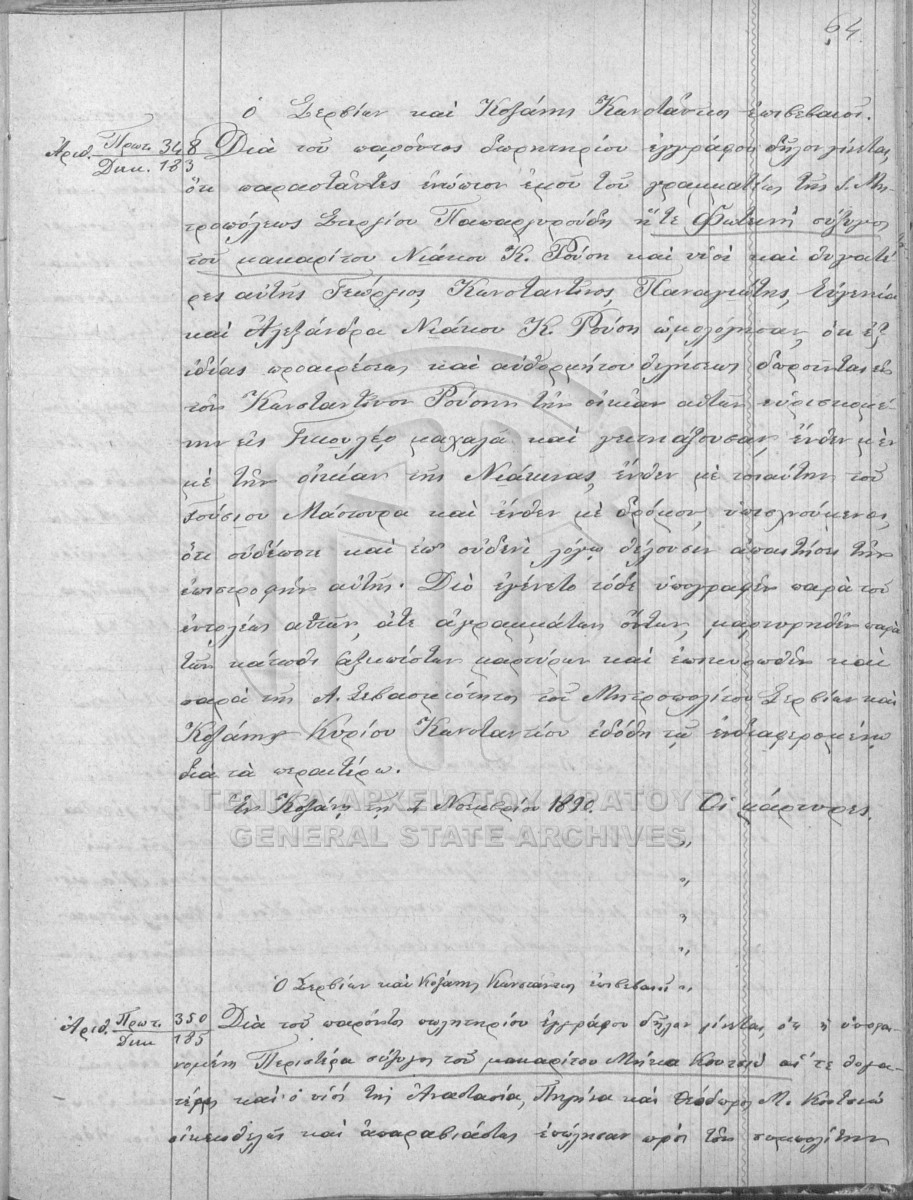 64.
Ὁ Σερβίων καὶ Κοζάνης Κωνστάντιος ἐπιβεβαιοῖ.
Ἀριθ. Πρωτ. 348 Διὰ τοῦ παρόντος δωρητηρίου ἐγγράφου δῆλον γίνεται,
Δικ. 183
ὅτι παραστάντες ἐνώπιον ἐμοῦ τοῦ γραμματέως τῆς Ἱ. Μη-
τροπόλεως Στεργίου Παπαργυρούδη ἥτε Φωτεινὴ σύζυγος
τοῦ μακαρίτου Νιάκου Κ. Ρούση καὶ υἱοὶ καὶ θυγατέ-
ρες αὐτῆς Γεώργιος, Κωνσταντῖνος, Παναγιώτης, Εὐγενία
καὶ Ἀλεξάνδρα Νιάκου Κ. Ρούση ὡμολόγησαν, ὅτι ἐξ
ἰδίας προαιρέσεως καὶ αὐθορμήτου θελήσεως δωροῦνται εἰς
τὸν Κωνσταντῖνον Ρούσην τὴν οἰκίαν αὐτῶν εὑρισκομέ-
νην εἰς Γκιουλὲρ μαχαλᾶ καὶ γειτνιάζουσαν ἔνθεν μὲν
μὲ τὴν οἰκίαν τῆς Νιάκινας, ἔνθεν μὲ τοιαύτην τοῦ
Γούσιου Μάστουρα καὶ ἔνθεν μὲ δρόμον, ὑποσχνούμενοι,
ὅτι οὐδέποτε καὶ ἐπ' οὐδενὶ λόγῳ θέλουσιν ἀπαιτήσει τὴν
ἐπιστροφὴν αὐτῆς. Διὸ ἐγένετο τόδε ὑπογραφὲν παρὰ τοῦ
ἐντολέως αὐτῶν, ἅτε ἀγραμμάτων ὄντων, μαρτυρηθὲν παρὰ
τῶν κάτωθι ἀξιοπίστων μαρτύρων καὶ ἐπικυρωθὲν καὶ
παρὰ τῆς Α. Σεβασμιότητος τοῦ Μητροπολίτου Σερβίων καὶ
Κοζάνης Κυρίου Κωνσταντίου ἐδόθη τῷ ἐνδιαφερομένῳ
διὰ τὰ περαιτέρω.
Ἐν Κοζάνῃ τῃ 1 Νοεμβρίου 1890. Οἱ μάρτυρες.
ΓΕΝΙΚΑ ΑΡΧΕΙΑ ΤΟΥ ΚΡΑΤΟΥΣ
GENERAL STATE ARCHIVES
〃
〃
〃
〃
Ὁ Σερβίων καὶ Κοζάνης Κωνστάντιος ἐπιβεβαιοῖ 〃
Ἀριθ. Πρωτ. 350 Διὰ τοῦ παρόντος πωλητηρίου ἐγγράφου δῆλον γίνεται, ὅτι ἡ ὀνομα-
Δικ. 185
νομένη Περιστέρα σύζυγος τοῦ μακαρίτου Μήκα Κουτσιῦ αἵ τε θυγα-
τέρες καὶ ὁ υἱός της Ἀναστασία, καὶ Θεόδωρος Μ. Κουτσιῦ
οἰκειοθελῶς καὶ ἀπαραβιάστως ἐπώλησαν πρὸς τὸν συμπολίτην